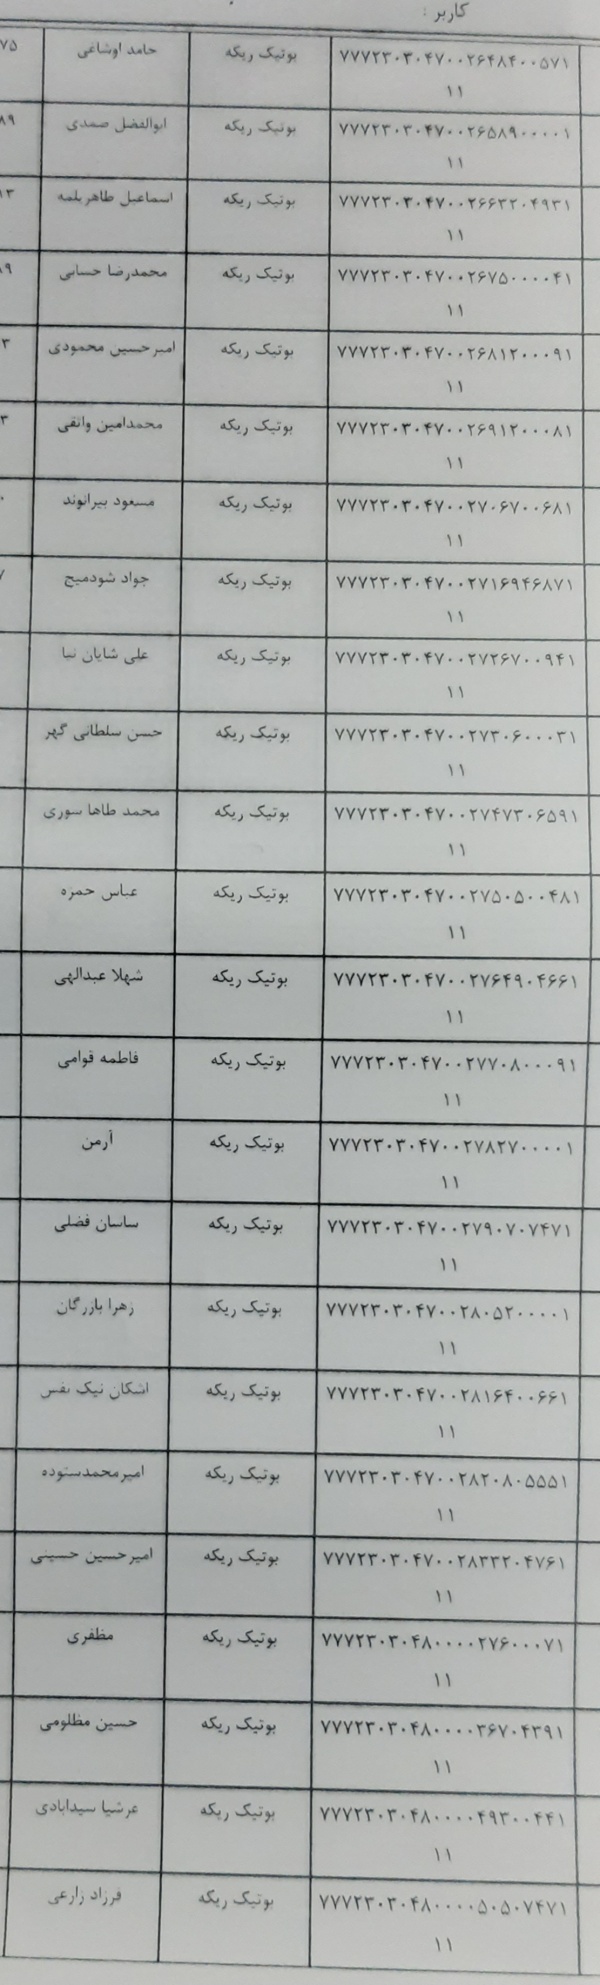 کاربر :
۷۷۷۲۳۰۳۰۴۷۰۰۲۶۴۸۴۰۰۵۷۱ بوتیک ریکه حامد اوشاغی ۷۵
۱۱
۷۷۷۲۳۰۳۰۴۷۰۰۲۶۵۸۹۰۰۰۰۱ بوتیک ریکه ابوالفضل صمدی ۸۹
۱۱
۷۷۷۲۳۰۳۰۴۷۰۰۲۶۶۳۲۰۴۹۳۱ بوتیک ریکه اسماعیل طاهریلمه ۱۳
۱۱
۷۷۷۲۳۰۳۰۴۷۰۰۲۶۷۵۰۰۰۰۴۱ بوتیک ریکه محمدرضا حسابی ۸۹
۱۱
۷۷۷۲۳۰۳۰۴۷۰۰۲۶۸۱۲۰۰۰۹۱ بوتیک ریکه امیرحسین محمودی ۳
۱۱
۷۷۷۲۳۰۳۰۴۷۰۰۲۶۹۱۲۰۰۰۸۱ بوتیک ریکه محمدامین واثقی ۳
۱۱
۷۷۷۲۳۰۳۰۴۷۰۰۲۷۰۶۷۰۰۶۸۱ بوتیک ریکه مسعود بیرانوند ۰
۱۱
۷۷۷۲۳۰۳۰۴۷۰۰۲۷۱۶۹۴۶۸۷۱ بوتیک ریکه جواد شودمیج ۷
۱۱
۷۷۷۲۳۰۳۰۴۷۰۰۲۷۲۶۷۰۰۹۴۱ بوتیک ریکه علی شایان نیا
۱۱
۷۷۷۲۳۰۳۰۴۷۰۰۲۷۳۰۶۰۰۰۳۱ بوتیک ریکه حسن سلطانی گهر
۱۱
۷۷۷۲۳۰۳۰۴۷۰۰۲۷۴۷۳۰۶۵۹۱ بوتیک ریکه محمد طاها سوری
۱۱
۷۷۷۲۳۰۳۰۴۷۰۰۲۷۵۰۵۰۰۴۸۱ بوتیک ریکه عباس حمزه
۱۱
۷۷۷۲۳۰۳۰۴۷۰۰۲۷۶۴۹۰۴۶۶۱ بوتیک ریکه شهلا عبدالهی
۱۱
۷۷۷۲۳۰۳۰۴۷۰۰۲۷۷۰۸۰۰۰۹۱ بوتیک ریکه فاطمه قوامی
۱۱
۷۷۷۲۳۰۳۰۴۷۰۰۲۷۸۲۷۰۰۰۰۱ بوتیک ریکه آرمن
۱۱
۷۷۷۲۳۰۳۰۴۷۰۰۲۷۹۰۷۰۷۴۷۱ بوتیک ریکه ساسان فضلی
۱۱
۷۷۷۲۳۰۳۰۴۷۰۰۲۸۰۵۲۰۰۰۰۱ بوتیک ریکه زهرا بازرگان
۱۱
۷۷۷۲۳۰۳۰۴۷۰۰۲۸۱۶۴۰۰۶۶۱ بوتیک ریکه اشکان نیک نفس
۱۱
۷۷۷۲۳۰۳۰۴۷۰۰۲۸۲۰۸۰۵۵۵۱ بوتیک ریکه امیرمحمدستوده
۱۱
۷۷۷۲۳۰۳۰۴۷۰۰۲۸۳۳۲۰۴۷۶۱ بوتیک ریکه امیرحسین حسینی
۱۱
۷۷۷۲۳۰۳۰۴۸۰۰۰۰۲۷۶۰۰۰۷۱ بوتیک ریکه مظفری
۱۱
۷۷۷۲۳۰۳۰۴۸۰۰۰۰۳۶۷۰۴۳۹۱ بوتیک ریکه حسین مظلومی
۱۱
۷۷۷۲۳۰۳۰۴۸۰۰۰۰۴۹۳۰۰۴۴۱ بوتیک ریکه عرشیا سیدابادی
۱۱
۷۷۷۲۳۰۳۰۴۸۰۰۰۰۵۰۵۰۷۴۷۱ بوتیک ریکه فرزاد زارعی
۱۱